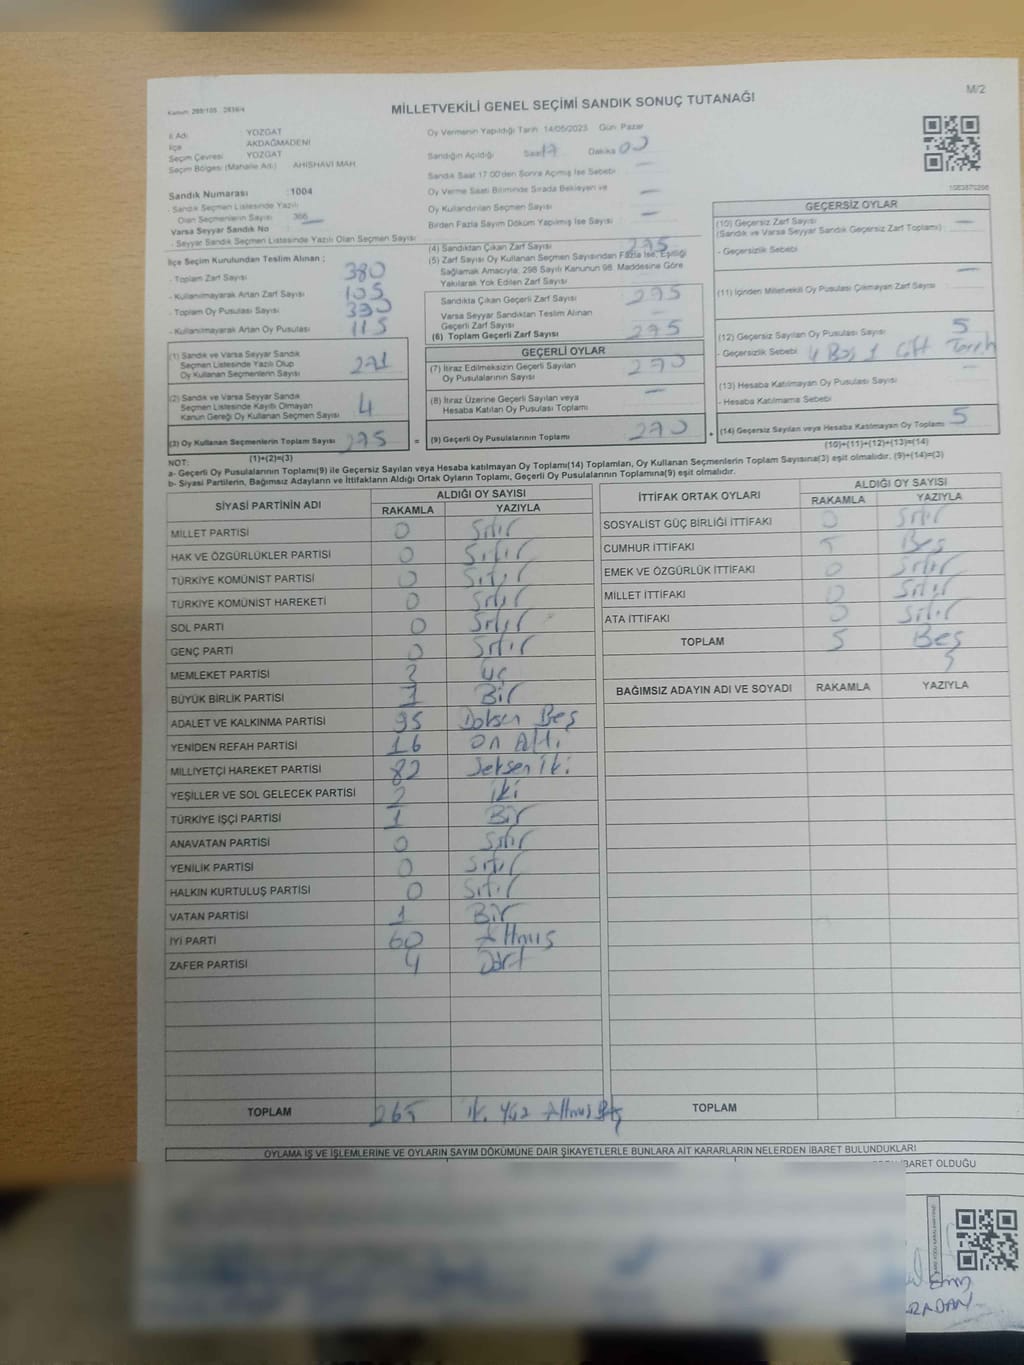 Kanun: 298/105 2839/4
MİLLETVEKİLİ GENEL SEÇİMİ SANDIK SONUÇ TUTANAĞI
M/2
İl Adı : YOZGAT
İlçe AKDAĞMADENİ
Seçim Çevresi : YOZGAT
Seçim Bölgesi (Mahalle Adı) AHISHAVI MAH.
Sandık Numarası : 1004
- Sandık Seçmen Listesinde Yazılı
Olan Seçmenlerin Sayısı 366
Varsa Seyyar Sandık No
- Seyyar Sandık Seçmen Listesinde Yazılı Olan Seçmen Sayısı
Oy Vermenin Yapıldığı Tarih 14/05/2023 Gün: Pazar
Sandığın Açıldığı Saat 17 Dakika 00
Sandık Saat 17.00'den Sonra Açılmış İse Sebebi —
Oy Verme Saati Bitiminde Sırada Bekleyen ve
Oy Kullandırılan Seçmen Sayısı —
Birden Fazla Sayım Döküm Yapılmış İse Sayısı —
İlçe Seçim Kurulundan Teslim Alınan ;
- Toplam Zarf Sayısı 380
- Kullanılmayarak Artan Zarf Sayısı 105
- Toplam Oy Pusulası Sayısı
- Kullanılmayarak Artan Oy Pusulası 115
(1) Sandık ve Varsa Seyyar Sandık
Seçmen Listesinde Yazılı Olup
Oy Kullanan Seçmenlerin Sayısı 271
(2) Sandık ve Varsa Seyyar Sandık
Seçmen Listesinde Kayıtlı Olmayan
Kanun Gereği Oy Kullanan Seçmen Sayısı 4
(3) Oy Kullanan Seçmenlerin Toplam Sayısı 275
(1)+(2)=(3)
(4) Sandıktan Çıkan Zarf Sayısı 275
(5) Zarf Sayısı Oy Kullanan Seçmen Sayısından Fazla İse, Eşitliği
Sağlamak Amacıyla, 298 Sayılı Kanunun 98. Maddesine Göre
Yakılarak Yok Edilen Zarf Sayısı
Sandıkta Çıkan Geçerli Zarf Sayısı 275
Varsa Seyyar Sandıktan Teslim Alınan
Geçerli Zarf Sayısı —
(6) Toplam Geçerli Zarf Sayısı 275
GEÇERLİ OYLAR
(7) İtiraz Edilmeksizin Geçerli Sayılan
Oy Pusulalarının Sayısı 270
(8) İtiraz Üzerine Geçerli Sayılan veya
Hesaba Katılan Oy Pusulası Toplamı —
= (9) Geçerli Oy Pusulalarının Toplamı 270 +
1083870298
GEÇERSİZ OYLAR
(10) Geçersiz Zarf Sayısı —
(Sandık ve Varsa Seyyar Sandık Geçersiz Zarf Toplamı)
- Geçersizlik Sebebi
(11) İçinden Milletvekili Oy Pusulası Çıkmayan Zarf Sayısı —
(12) Geçersiz Sayılan Oy Pusulası Sayısı 5
- Geçersizlik Sebebi 4 Boş 1 Çift
(13) Hesaba Katılmayan Oy Pusulası Sayısı —
- Hesaba Katılmama Sebebi
(14) Geçersiz Sayılan veya Hesaba Katılmayan Oy Toplamı 5
(10)+(11)+(12)+(13)=(14)
NOT:
a- Geçerli Oy Pusulalarının Toplamı(9) ile Geçersiz Sayılan veya Hesaba katılmayan Oy Toplamı(14) Toplamları, Oy Kullanan Seçmenlerin Toplam Sayısına(3) eşit olmalıdır. (9)+(14)=(3)
b- Siyasi Partilerin, Bağımsız Adayların ve İttifakların Aldığı Ortak Oyların Toplamı, Geçerli Oy Pusulalarının Toplamına(9) eşit olmalıdır.
SİYASİ PARTİNİN ADI ALDIĞI OY SAYISI
RAKAMLA YAZIYLA
MİLLET PARTİSİ 0 Sıfır
HAK VE ÖZGÜRLÜKLER PARTİSİ 0 Sıfır
TÜRKİYE KOMÜNİST PARTİSİ 0 Sıfır
TÜRKİYE KOMÜNİST HAREKETİ 0 Sıfır
SOL PARTİ 0 Sıfır
GENÇ PARTİ 0 Sıfır
MEMLEKET PARTİSİ 3 Üç
BÜYÜK BİRLİK PARTİSİ 1 Bir
ADALET VE KALKINMA PARTİSİ 95 Doksan Beş
YENİDEN REFAH PARTİSİ 16 On Altı
MİLLİYETÇİ HAREKET PARTİSİ 82 Seksen iki
YEŞİLLER VE SOL GELECEK PARTİSİ 2 iki
TÜRKİYE İŞÇİ PARTİSİ 1 Bir
ANAVATAN PARTİSİ 0 Sıfır
YENİLİK PARTİSİ 0 Sıfır
HALKIN KURTULUŞ PARTİSİ 0 Sıfır
VATAN PARTİSİ 1 Bir
İYİ PARTİ 60 Altmış
ZAFER PARTİSİ 4 Dört
TOPLAM 265 iki yüz Altmış Beş
İTTİFAK ORTAK OYLARI ALDIĞI OY SAYISI
RAKAMLA YAZIYLA
SOSYALİST GÜÇ BİRLİĞİ İTTİFAKI 0 Sıfır
CUMHUR İTTİFAKI 5 Beş
EMEK VE ÖZGÜRLÜK İTTİFAKI 0 Sıfır
MİLLET İTTİFAKI 0 Sıfır
ATA İTTİFAKI 0 Sıfır
TOPLAM 5 Beş
BAĞIMSIZ ADAYIN ADI VE SOYADI RAKAMLA YAZIYLA
TOPLAM
OYLAMA İŞ VE İŞLEMLERİNE VE OYLARIN SAYIM DÖKÜMÜNE DAİR ŞİKAYETLERLE BUNLARA AİT KARARLARIN NELERDEN İBARET BULUNDUKLARI
İBARET OLDUĞU